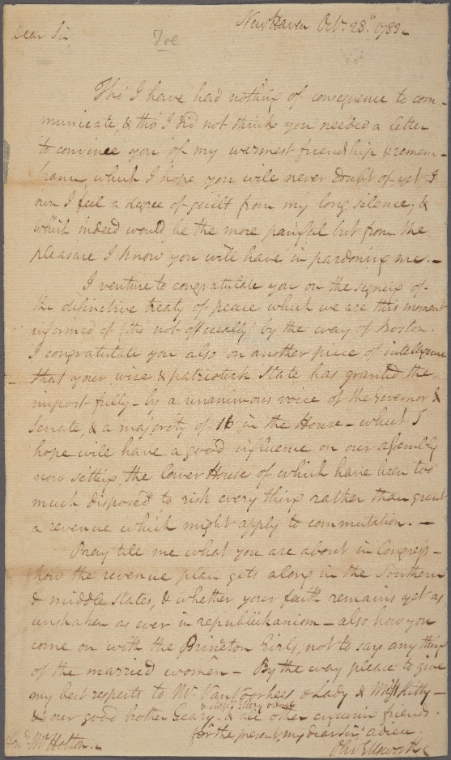 New Haven Octr. 28th. 1783.
Dear Sir
Tho' I have had nothing of consequence to com-
municate, & tho' I did not think you needed a letter
to convince you of my warmest friendship & remem-
brance which I hope you will never doubt of yet I
own I feel a degree of guilt from my long silence; &
which indeed would be the more painful but from the
pleasure I know you will have in pardoning me. —
I venture to congratulate you on the signing of
the definitive treaty of peace which we are this moment
informed of (tho' not officially) by the way of Boston.
I congratulate you also on another piece of intelligence
that your wise & patriotick State has granted the
impost fully — by a unanimous voice of the Governor &
Senate, & a majority of 16 in the House — which I
hope will have a good influence on our assembly
now sitting, the lower House of which have been too
much disposed to risk every thing rather than grant
a revenue which might apply to commutation. —
Pray tell me what you are about in Congress —
how the revenue plan gets along in the Southern
& middle States, & whether your faith remains yet as
unshaken as ever in republickanism — also how you
come on with the Princeton Girls, not to say any thing
of the married women — By the way please to give
my best respects to Mr. Van Voorhees & Lady & Miss Kitty —
& our good brother Geary, & all other enquiring friends.
for the present, my dear Sir, adieu
Mr. Holten.
Olivr Ellsworth